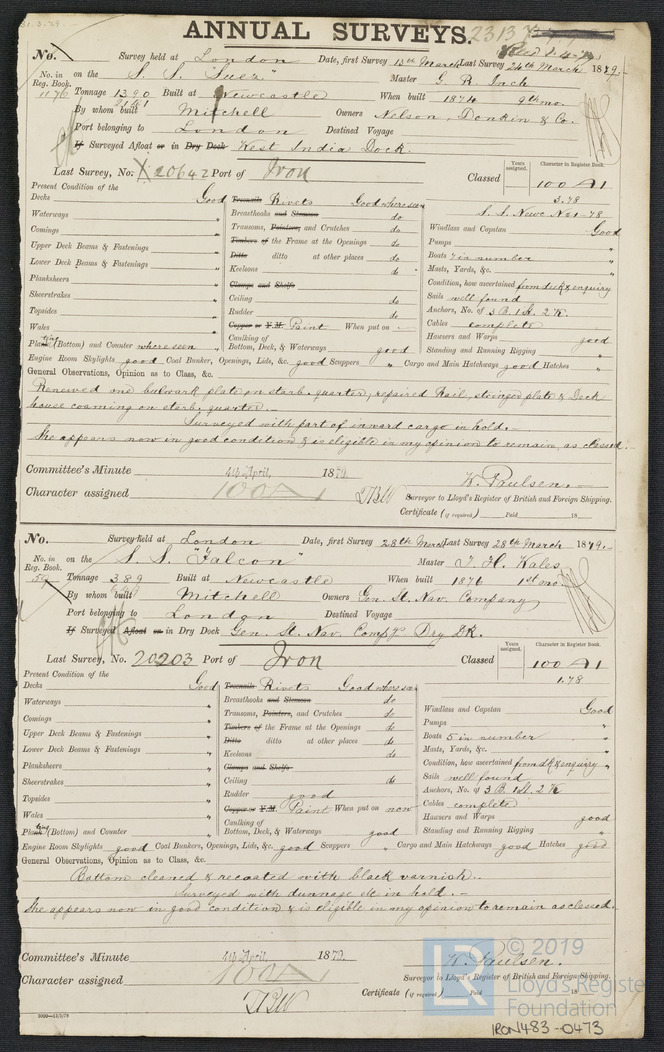 31.3.79.
ANNUAL SURVEYS. 2313
No. Survey held at London Date, first Survey 13th March Last Survey 24th March 1879.
No. in Reg. Book. on the S. S. "Suez" Master G. R. Inch
1176 Tonnage 1390 Built at Newcastle When built 1874 9th mo.
2141 By whom built Mitchell Owners Nelson, Donkin & Co.
Port belonging to London Destined Voyage
If Surveyed Afloat or in Dry Dock West India Dock.
Last Survey, No. 20642 Port of Iron Classed Years assigned. Character in Register Book. 100 A 1
3.78
S. S. Newc No 1-78
Present Condition of the
Decks Good Treenails Rivets Good where seen
Waterways " Breasthooks and Stemson do Windlass and Capstan Good
Comings " Transoms, Pointers, and Crutches do Pumps "
Upper Deck Beams & Fastenings " Timbers of the Frame at the Openings do Boats 7 in number "
Lower Deck Beams & Fastenings " Ditto ditto at other places do Masts, Yards, &c. "
Planksheers " Keelsons do Condition, how ascertained from deck & enquiry
Sheerstrakes " Clamps and Shelfs Sails well found
Topsides " Ceiling do Anchors, No. of 3 B. 1 St. 2 K.
Wales " Rudder do Cables complete
Plank (Bottom) and Counter where seen " Copper or Y.M. Paint When put on - Hawsers and Warps good
Caulking of Bottom, Deck, & Waterways good Standing and Running Rigging "
Engine Room Skylights good Coal Bunker, Openings, Lids, &c. good Scuppers " Cargo and Main Hatchways good Hatches "
General Observations, Opinion as to Class, &c.
Renewed one bulwark plate on starb. quarter, repaired Rail, stringer plate & Deck
house coaming on starb. quarter.-
Surveyed with part of inward cargo in hold.-
She appears now in good condition & is eligible in my opinion to remain, as classed.
Committee's Minute 4th April, 1879 W. Paulsen.
Character assigned 100 A 1 Surveyor to Lloyd's Register of British and Foreign Shipping.
Certificate (if required) Paid 18
No. Survey held at London Date, first Survey 28th March Last Survey 28th March 1879.
No. in Reg. Book. on the S. S. "Falcon" Master J. H. Wales
Tonnage 389 Built at Newcastle When built 1876 1st mo.
By whom built Mitchell Owners Gen. St. Nav. Company
Port belonging to London Destined Voyage
If Surveyed Afloat or in Dry Dock Gen. St. Nav. Compy's Dry Dk.
Last Survey, No. 20203 Port of Iron Classed Years assigned. Character in Register Book. 100 A 1
1.78
Present Condition of the
Decks Good Treenails Rivets Good where seen
Waterways " Breasthooks and Stemson do Windlass and Capstan Good
Comings " Transoms, Pointers, and Crutches do Pumps "
Upper Deck Beams & Fastenings " Timbers of the Frame at the Openings do Boats 5 in number "
Lower Deck Beams & Fastenings " Ditto ditto at other places do Masts, Yards, &c. "
Planksheers " Keelsons do Condition, how ascertained from dk & enquiry "
Sheerstrakes " Clamps and Shelfs Sails well found
Topsides " Ceiling do Anchors, No. of 3 B. 1 St. 2 K
Wales " Rudder good Cables complete
Plank (Bottom) and Counter " Copper or Y.M. Paint When put on now Hawsers and Warps good
Caulking of Bottom, Deck, & Waterways good Standing and Running Rigging "
Engine Room Skylights good Coal Bunkers, Openings, Lids, &c. good Scuppers " Cargo and Main Hatchways good Hatches good
General Observations, Opinion as to Class, &c.
Bottom cleaned & recoated with black varnish.
Surveyed with dunnage etc in hold.-
She appears now in good condition & is eligible in my opinion to remain as classed.
Committee's Minute 4th April, 1879. W. Paulsen.
Character assigned 100 A 1 Surveyor to Lloyd's Register of British and Foreign Shipping.
Certificate (if required) Paid 18
© 2019
LR Lloyd's Register
Foundation
IRON483-0473